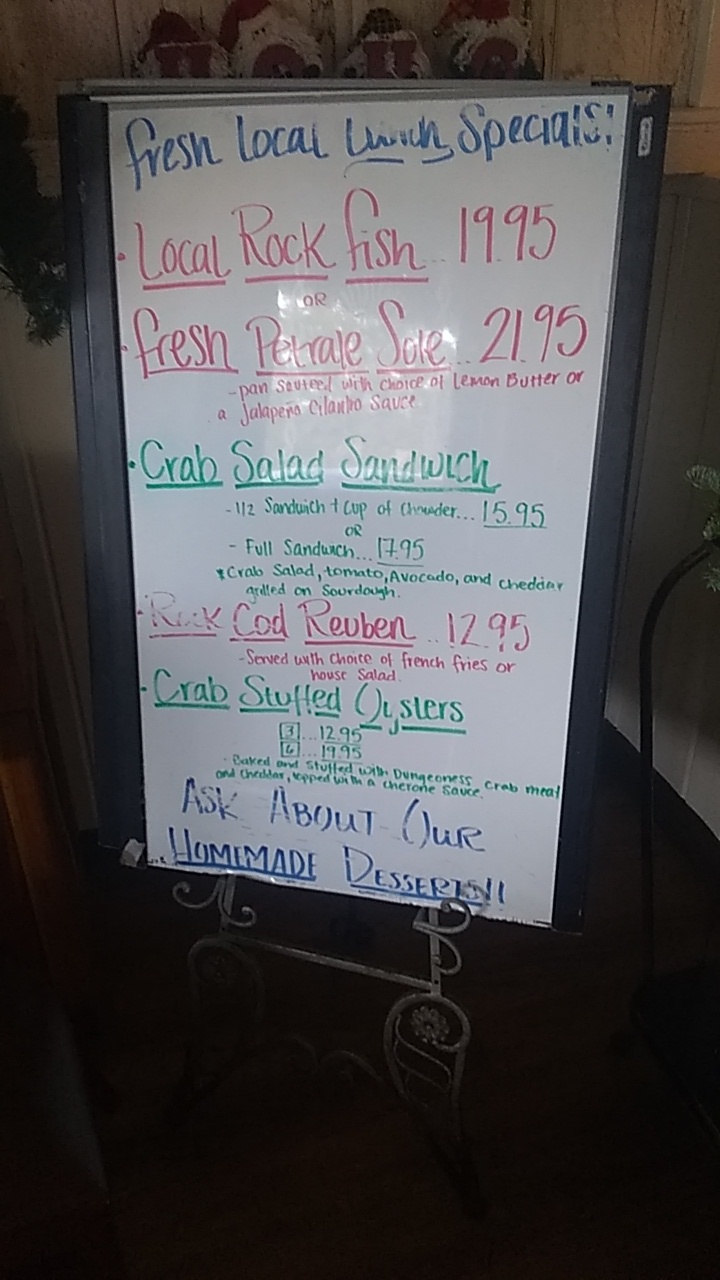 Fresh Local Lunch Specials!
• Local Rock Fish... 19.95
OR
• Fresh Petrale Sole... 21.95
- pan sauteed with choice of Lemon Butter or
a Jalapeño Cilantro Sauce.
• Crab Salad Sandwich
- 1/2 Sandwich + Cup of Chowder... 15.95
OR
- Full Sandwich... 17.95
*Crab Salad, tomato, Avocado, and cheddar
grilled on Sourdough.
• Rock Cod Reuben... 12.95
- Served with choice of french fries or
house Salad.
• Crab Stuffed Oysters
3 ... 12.95
6 ... 19.95
- Baked and Stuffed with Dungeness Crab meat
and cheddar, topped with a cherone sauce.
Ask About Our
... Homemade Desserts!!